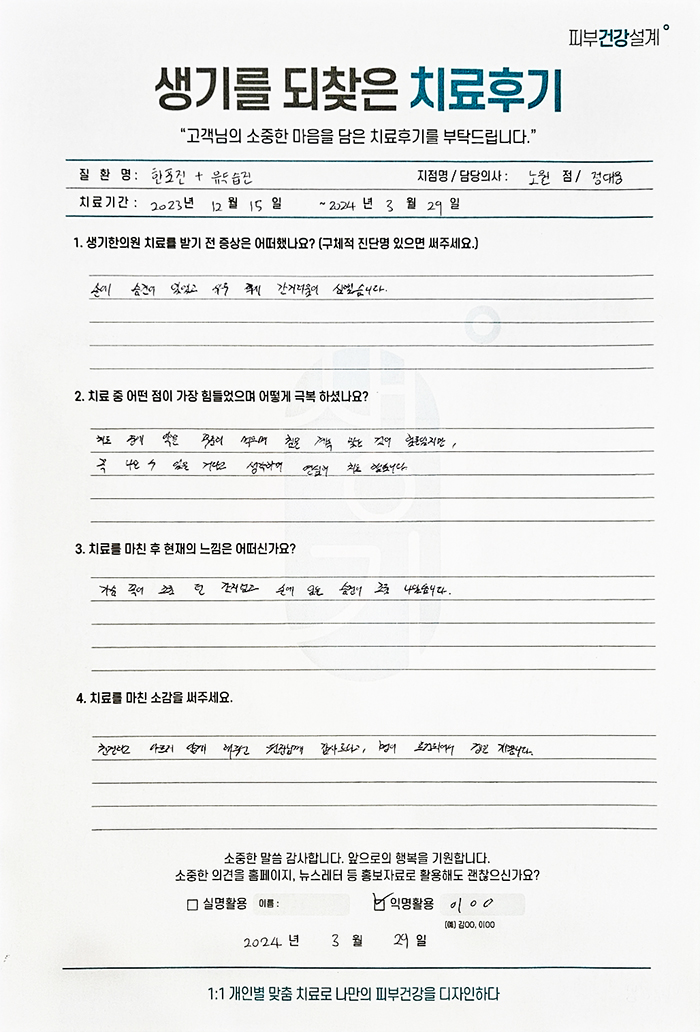 피부건강설계
생기를 되찾은 치료후기
“고객님의 소중한 마음을 담은 치료후기를 부탁드립니다.”
질 환 명 : 한포진 + 유두습진 지점명 / 담당의사 : 노원 점 / 정대웅
치료기간 : 2023년 12월 15일 ~2024년 3월 29일
1. 생기한의원 치료를 받기 전 증상은 어떠했나요? (구체적 진단명 있으면 써주세요.)
손에 습진이 있었고 유두 쪽의 간지러움이 심했습니다.
2. 치료 중 어떤 점이 가장 힘들었으며 어떻게 극복 하셨나요?
치료 중에 약은 먹으며 침을 계속 맞는 것이 힘들었지만,
꼭 나을 수 있을 거라고 생각하며 열심히 치료 했습니다.
3. 치료를 마친 후 현재의 느낌은 어떠신가요?
가슴 쪽이 조금 덜 간지럽고 손에 있는 습진이 조금 나았습니다.
4. 치료를 마친 소감을 써주세요.
친절하고 아프지 않게 해주신 원장님께 감사드리고, 병이 호전되어서 정말 기쁩니다.
소중한 말씀 감사합니다. 앞으로의 행복을 기원합니다.
소중한 의견을 홈페이지, 뉴스레터 등 홍보자료로 활용해도 괜찮으신가요?
실명활용 이름 : 익명활용 이○○
(예) 김OO, 이OO
2024년 3월 29일
1:1 개인별 맞춤 치료로 나만의 피부건강을 디자인하다
생기